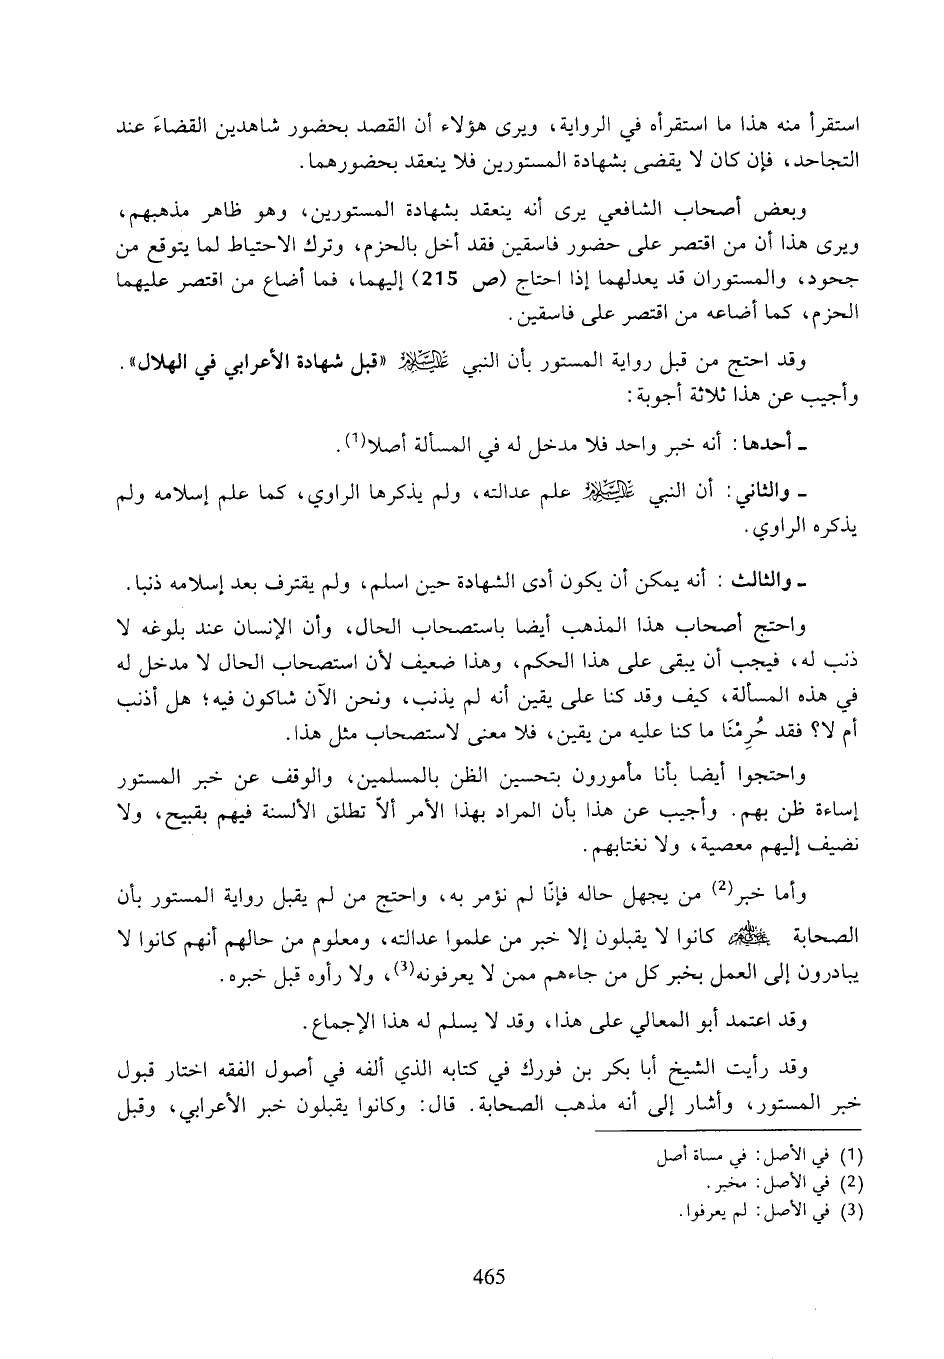 استقرأ منه هذا ما استقرأه في الرواية، ويرى هؤلاء أن القصد بحضور شاهدين القضاءَ عند
التجاحد، فإن كان لا يقضى بشهادة المستورين فلا ينعقد بحضورهما.
وبعض أصحاب الشافعي يرى أنه ينعقد بشهادة المستورين، وهو ظاهر مذهبهم،
ويرى هذا أن من اقتصر على حضور فاسقين فقد أخل بالحزم، وترك الاحتياط لما يتوقع من
جحود، والمستوران قد يعدلهما إذا احتاج (ص 215) إليهما، فما أضاع من اقتصر عليهما
الحزم، كما أضاعه من اقتصر على فاسقين.
وقد احتج من قبل رواية المستور بأن النبي عليه السلام «قبل شهادة الأعرابي في الهلال».
وأجيب عن هذا ثلاثة أجوبة:
ـ أحدها: أنه خبر واحد فلا مدخل له في المسألة أصلا(1).
ـ والثاني: أن النبي عليه السلام علم عدالته، ولم يذكرها الراوي، كما علم إسلامه ولم
يذكره الراوي.
ـ والثالث : أنه يمكن أن يكون أدى الشهادة حين اسلم، ولم يقترف بعد إسلامه ذنبا.
واحتج أصحاب هذا المذهب أيضا باستصحاب الحال، وأن الإنسان عند بلوغه لا
ذنب له، فيجب أن يبقى على هذا الحكم، وهذا ضعيف لأن استصحاب الحال لا مدخل له
في هذه المسألة، كيف وقد كنا على يقين أنه لم يذنب، ونحن الآن شاكون فيه؛ هل أذنب
أم لا؟ فقد حُرِمْنَا ما كنا عليه من يقين، فلا معنى لاستصحاب مثل هذا.
واحتجوا أيضا بأنا مأمورون بتحسين الظن بالمسلمين، والوقف عن خبر المستور
إساءة ظن بهم. وأجيب عن هذا بأن المراد بهذا الأمر ألاّ تطلق الألسنة فيهم بقبيح، ولا
نضيف إليهم معصية، ولا نغتابهم.
وأما خبر(2) من يجهل حاله فإنّا لم نؤمر به، واحتج من لم يقبل رواية المستور بأن
الصحابة كانوا لا يقبلون إلا خبر من علموا عدالته، ومعلوم من حالهم أنهم كانوا لا
يبادرون إلى العمل بخبر كل من جاءهم ممن لا يعرفونه(3)، ولا رأوه قبل خبره.
وقد اعتمد أبو المعالي على هذا، وقد لا يسلم له هذا الإجماع.
وقد رأيت الشيخ أبا بكر بن فورك في كتابه الذي ألفه في أصول الفقه اختار قبول
خبر المستور، وأشار إلى أنه مذهب الصحابة. قال: وكانوا يقبلون خبر الأعرابي، وقبل
(1) في الأصل: في مساة أصل
(2) في الأصل: مخبر.
(3) في الأصل: لم يعرفوا.
465